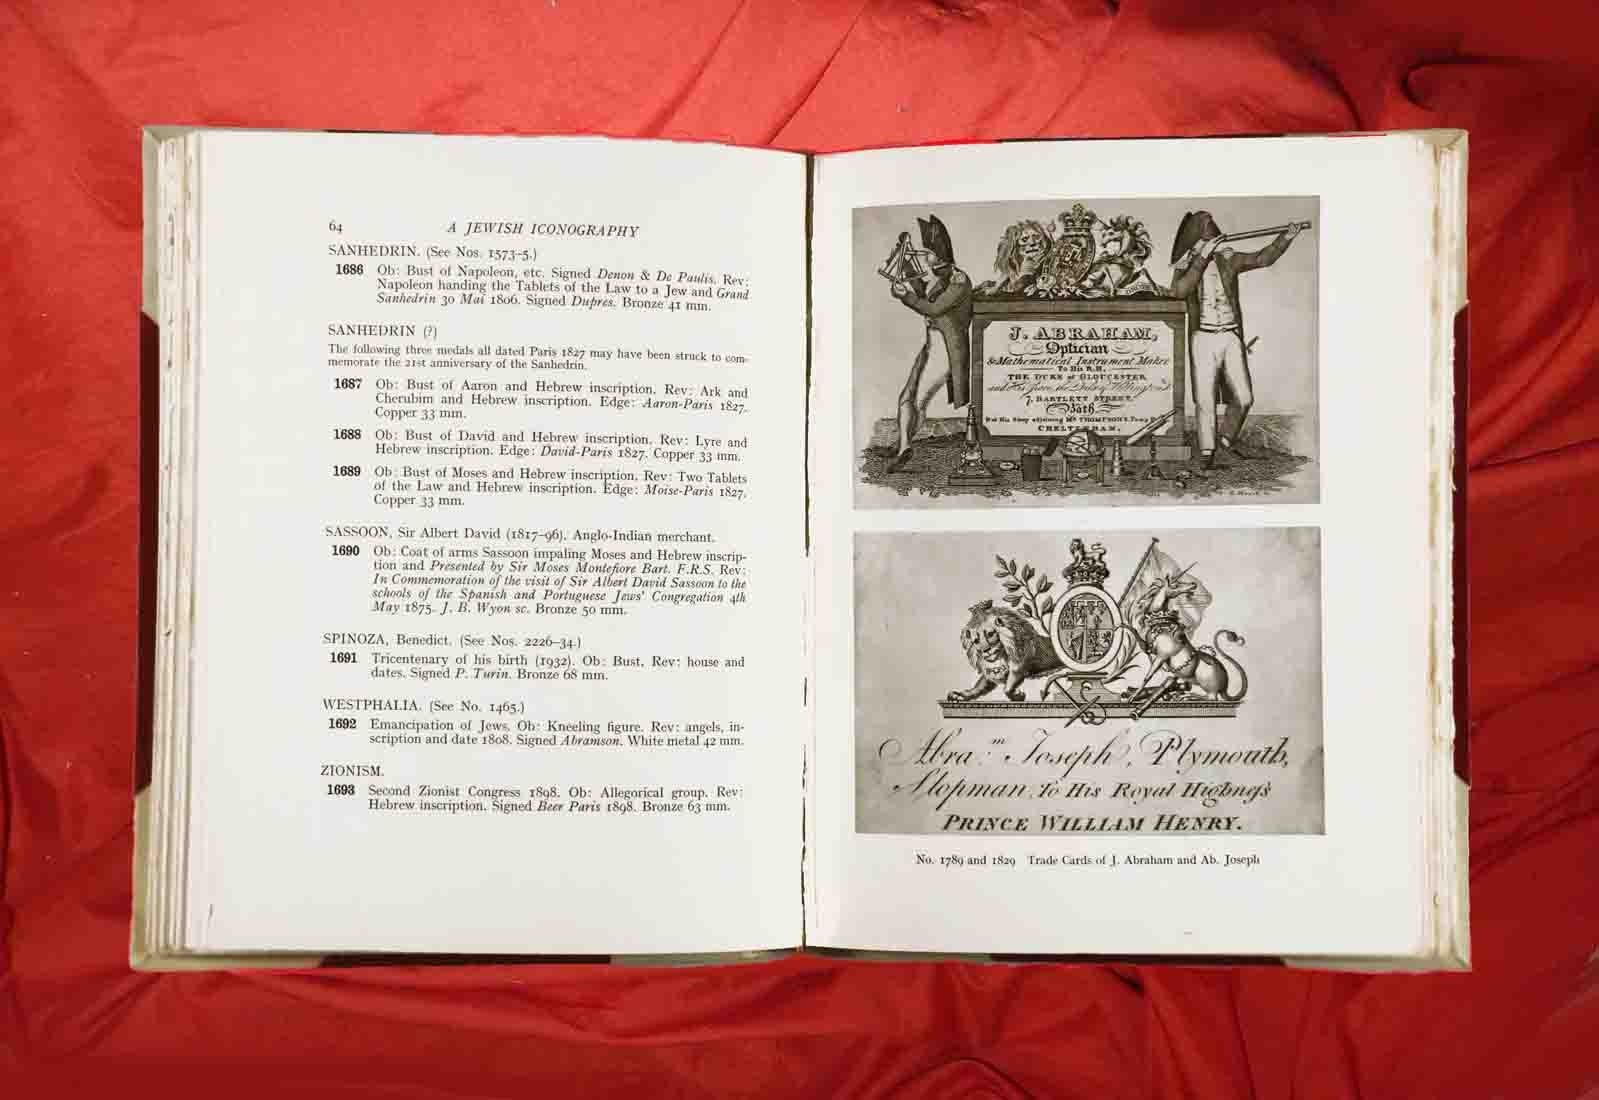 64 A JEWISH ICONOGRAPHY
SANHEDRIN. (See Nos. 1573-5.)
1686 Ob: Bust of Napoleon, etc. Signed Denon & De Paulis. Rev:
Napoleon handing the Tablets of the Law to a Jew and Grand
Sanhedrin 30 Mai 1806. Signed Dupres. Bronze 41 mm.
SANHEDRIN (?)
The following three medals all dated Paris 1827 may have been struck to com-
memorate the 21st anniversary of the Sanhedrin.
1687 Ob: Bust of Aaron and Hebrew inscription. Rev: Ark and
Cherubim and Hebrew inscription. Edge: Aaron-Paris 1827.
Copper 33 mm.
1688 Ob: Bust of David and Hebrew inscription. Rev: Lyre and
Hebrew inscription. Edge: David-Paris 1827. Copper 33 mm.
1689 Ob: Bust of Moses and Hebrew inscription. Rev: Two Tablets
of the Law and Hebrew inscription. Edge: Moise-Paris 1827.
Copper 33 mm.
SASSOON, Sir Albert David (1817-96). Anglo-Indian merchant.
1690 Ob: Coat of arms Sassoon impaling Moses and Hebrew inscrip-
tion and Presented by Sir Moses Montefiore Bart. F.R.S. Rev:
In Commemoration of the visit of Sir Albert David Sassoon to the
schools of the Spanish and Portuguese Jews' Congregation 4th
May 1875. J. B. Wyon sc. Bronze 50 mm.
SPINOZA, Benedict. (See Nos. 2226-34.)
1691 Tricentenary of his birth (1932). Ob: Bust, Rev: house and
dates. Signed P. Turin. Bronze 68 mm.
WESTPHALIA. (See No. 1465.)
1692 Emancipation of Jews. Ob: Kneeling figure. Rev: angels, in-
scription and date 1808. Signed Abramson. White metal 42 mm.
ZIONISM.
1693 Second Zionist Congress 1898. Ob: Allegorical group. Rev:
Hebrew inscription. Signed Beer Paris 1898. Bronze 63 mm.
J. ABRAHAM,
Optician
& Mathematical Instrument Maker
To His R.H.
THE DUKE of GLOUCESTER
and His Grace the Duke of Wellington
7, BARTLETT STREET,
Bath
& at his Shop adjoining Mr THOMPSON'S
CHELTENHAM.
Abram Joseph, Plymouth,
Slopman, To His Royal Highness
PRINCE WILLIAM HENRY.
No. 1789 and 1829 Trade Cards of J. Abraham and Ab. Joseph